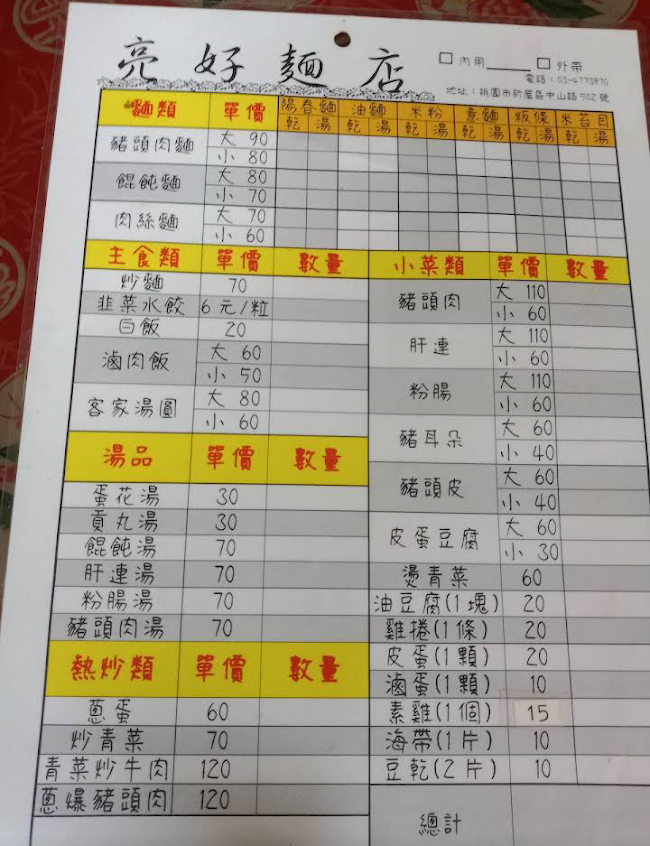 亮好麵店
□內用____ □外帶
電話：03-4773970
地址：桃園市新屋區中山路702號
麵類 單價 陽春麵 油麵 米粉 意麵 粄條 米苔目
乾 湯 乾 湯 乾 湯 乾 湯 乾 湯 乾 湯
豬頭肉麵 大 90
小 80
餛飩麵 大 80
小 70
肉絲麵 大 70
小 60
主食類 單價 數量
炒麵 70
韭菜水餃 6元/粒
白飯 20
滷肉飯 大 60
小 50
客家湯圓 大 80
小 60
湯品 單價 數量
蛋花湯 30
貢丸湯 30
餛飩湯 70
肝連湯 70
粉腸湯 70
豬頭肉湯 70
熱炒類 單價 數量
蔥蛋 60
炒青菜 70
青菜炒牛肉 120
蔥爆豬頭肉 120
小菜類 單價 數量
豬頭肉 大 110
小 60
肝連 大 110
小 60
粉腸 大 110
小 60
豬耳朵 大 60
小 40
豬頭皮 大 60
小 40
皮蛋豆腐 大 60
小 30
燙青菜 60
油豆腐(1塊) 20
雞捲(1條) 20
皮蛋(1顆) 20
滷蛋(1顆) 10
素雞(1個) 15
海帶(1片) 10
豆乾(2片) 10
總計